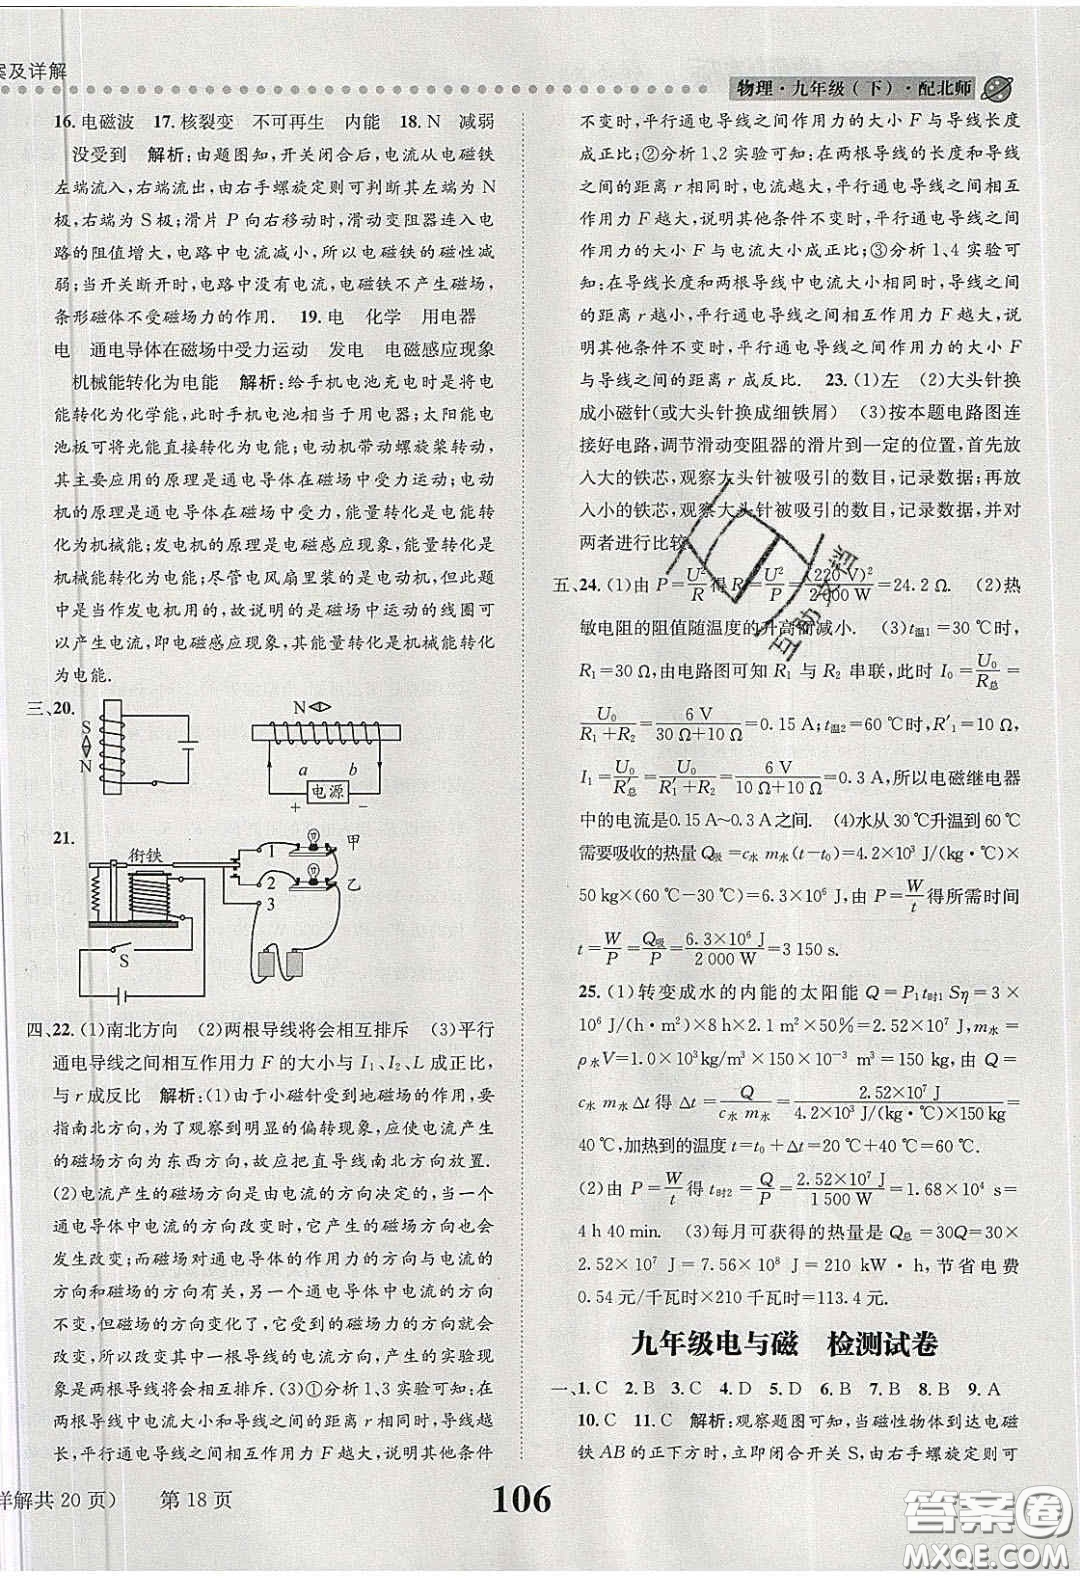 案及详解
物理·九年级(下)·配北师
16. 电磁波 17. 核裂变 不可再生 内能 18. N 减弱
没受到 解析:由题图知,开关闭合后,电流从电磁铁
左端流入,右端流出,由右手螺旋定则可判断左端为 N
极,右端为 S 极;滑片 P 向右移动时,滑动变阻器连入电
路的阻值增大,电路中电流减小,所以电磁铁的磁性减
弱;当开关断开时,电路中没有电流,电磁铁没有磁性,
条形磁体不受磁场力的作用. 19. 电 化学 用电器
电 通电导体在磁场中受力运动 发电 电磁感应现象
机械能转化为电能 解析:给手机电池充电时是将电
能转化为化学能,此时手机电池相当于用电器;太阳能电
池板可将光能直接转化为电能;电动机带动螺旋桨转动,
其主要应用的原理是通电导体在磁场中受力运动;电动
机的原理是通电导体在磁场中受力,能量转化是电能转
化为机械能;发电机的原理是电磁感应现象,能量转化是
机械能转化为电能;尽管电风扇里装的是电动机,但此题
中是当作发电机用的,故说明的是磁场中运动的线圈可
以产生电流,即电磁感应现象,能量转化是机械能转化
为电能.
三、20.
S
N
N
a b
电源
+ −
21.
衔铁
1
2
3
甲
乙
S
四、22. (1)南北方向 (2)两根导线将会相互排斥 (3)平行
通电导线之间相互作用力 F 的大小与 I₁、I₂、L 成正比,
与 r 成反比 解析:(1)由于小磁针受到地磁场的作用,
要指南北方向,为了观察到明显的偏转现象,应使电流产生
的磁场方向为东西方向,故应把直导线南北方向放置.
(2)电流产生的磁场方向是由电流的方向决定的,当一个
通电导体中电流的方向改变时,它产生的磁场方向也会
发生改变;而磁场对通电导体的作用力的方向与电流的
方向和磁场的方向有关,另一个通电导体中电流的方向
不变,但磁场的方向变化了,它受到的磁场力的方向就会
改变,所以改变其中一根导线的电流方向,观察到的实验现
象是两根导线会相互排斥.(3)①分析 1、3 实验可知:在
两根导线中电流大小和导线的距离 r 相同时,导线越
长,平行通电导线之间相互作用力 F 越大,说明其他条件
不变时,平行通电导线之间相互作用力的大小 F 与导线长度
成正比;②分析 1、2 实验可知:在两根导线的长度和导线之
间的距离 r 相同时,电流越大,平行通电导线之间的相互作
用力 F 越大,说明其他条件不变时,平行通电导线之间相互
作用力的大小 F 与电流大小成正比;③分析 1、4 实验可
知:在两根导线的长度和导线中电流大小相同时,导线之间
的距离越大,平行通电导线之间的相互作用力 F 越大,说
明其他条件不变时,平行通电导线之间相互作用力的大小 F
与导线之间的距离 r 成反比. 23. (1)左 (2)大头针换
成小磁针(或大头针换成细铁屑) (3)按本题电路图连
接好电路,调节滑动变阻器的滑片到一定的位置,首先放
入大的铁芯,观察大头针被吸引的数目,记录数据;再放
入小的铁芯,观察大头针被吸引的数目,记录数据,并对
两者进行比较
五、24. (1)由 P=U²/R 得 R=U²/P=(220 V)²/2 000 W=24.2 Ω. (2)热
敏电阻的阻值随温度的升高而减小. (3)t温1=30 ℃时,
R₁=30 Ω,由电路图可知 R₁ 与 R₂ 串联,此时 I₀=U₀/R总=
U₀/(R₁+R₂)=6 V/(30 Ω+10 Ω)=0.15 A;t温2=60 ℃时,R'₁=10 Ω,
I₁=U₀/R'总=U₀/(R'₁+R₂)=6 V/(10 Ω+10 Ω)=0.3 A,所以电磁继电器
中的电流是0.15 A~0.3 A之间. (4)水从 30 ℃升温到 60 ℃
需要吸收的热量 Q吸=c水 m水(t−t₀)=4.2×10³ J/(kg·℃)×
50 kg×(60 ℃−30 ℃)=6.3×10⁶ J,由 P=W/t得所需时间
t=W/P=Q吸/P=6.3×10⁶ J/2 000 W=3 150 s.
25. (1)转变成水的内能的太阳能 Q=P₁t时1 Sη=3×
10⁶ J/(m²·h)×8 h×2 m²×50%=2.52×10⁷ J, m水=
ρ水V=1.0×10³kg/m³×150×10⁻³ m³=150 kg,由 Q=
c水 m水 Δt 得 Δt=Q/(c水 m水)=2.52×10⁷ J/(4.2×10³ J/(kg·℃)×150 kg)=
40 ℃,加热到的温度 t=t₀+Δt=20 ℃+40 ℃=60 ℃.
(2)由 P=W/t得 t时2=Q/P=2.52×10⁷ J/1 500 W=1.68×10⁴ s=
4 h 40 min. (3)每月可获得的热量是 Q总=30Q=30×
2.52×10⁷ J=7.56×10⁸ J=210 kW·h,节省电费
0.54 元/千瓦时×210 千瓦时=113.4 元.
九年级电与磁 检测试卷
一、1. C 2. B 3. C 4. D 5. D 6. B 7. B 8. B 9. A
10. C 11. C 解析:观察题图可知,当磁性物体到达电磁
铁 AB 的正下方时,立即闭合开关 S,由右手螺旋定则可
详解共 20 页) 第 18 页
106
互动文档
答案圈
MXQE.COM